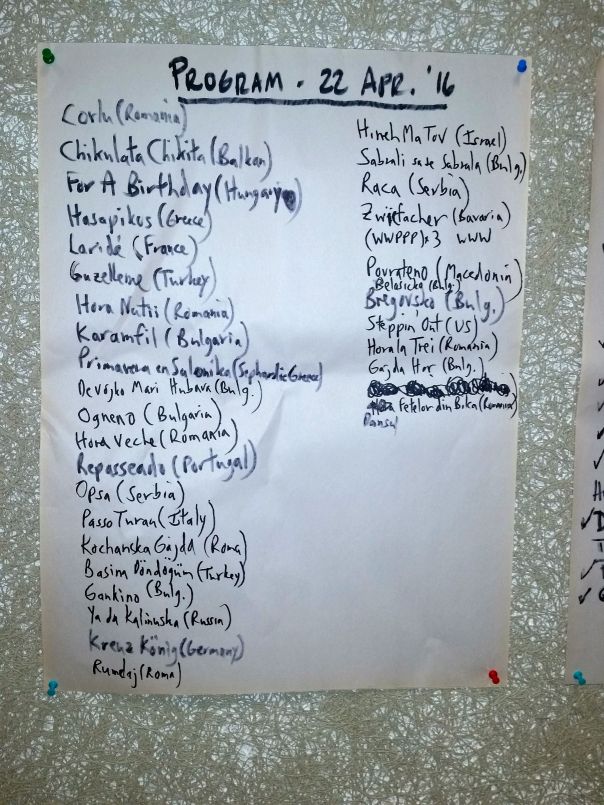 PROGRAM - 22 APR. '16
Corlu (Romania)
Chikulata Chikita (Balkan)
For A Birthday (Hungary)
Hasapikos (Greece)
Laridé (France)
Guzelleme (Turkey)
Hora Nutii (Romania)
Karamfil (Bulgaria)
Primavera en Salonika (Sephardic Greece)
Devojko Mari Hubava (Bulg.)
Ogneno (Bulgaria)
Hora Veche (Romania)
Repasseado (Portugal)
Opsa (Serbia)
Passo Turau (Italy)
Kochanska Gajda (Roma)
Basina Döndögüm (Turkey)
Gankino (Bulg.)
Ya da Kalinuska (Russia)
Kreuz König (Germany)
Rumelaj (Roma)
Hineh Ma Tov (Israel)
Sabrali sa se Sabrala (Bulg.)
Raca (Serbia)
Zwiefacher (Bavaria)
(WWPPP)x3 WWW
Povrateno (Macedonia)
Belasicko (Bulg.)
Bregovsko (Bulg.)
Steppin' Out (US)
Horala Trei (Romania)
Gajda Hor (Bulg.)
Fetelor din Bika (Romania)
Dansul